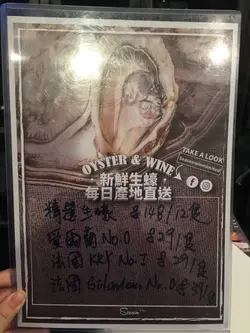 OYSTER & WINE
TAKE A LOOK
新鮮生蠔
每日產地直送
精選生蠔 $148/12隻
愛爾蘭 No.0 $29/隻
法國 KKF No.1 $29/隻
法國 Gillardeau No.0 $39/隻